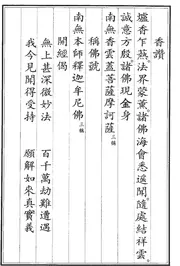 香讚
爐香乍爇法界蒙薰諸佛海會悉遙聞隨處結祥雲
誠意方殷諸佛現全身
南無香雲蓋菩薩摩訶薩三稱
稱佛號
南無本師釋迦牟尼佛三稱
開經偈
無上甚深微妙法　百千萬劫難遭遇
我今見聞得受持　願解如來真實義